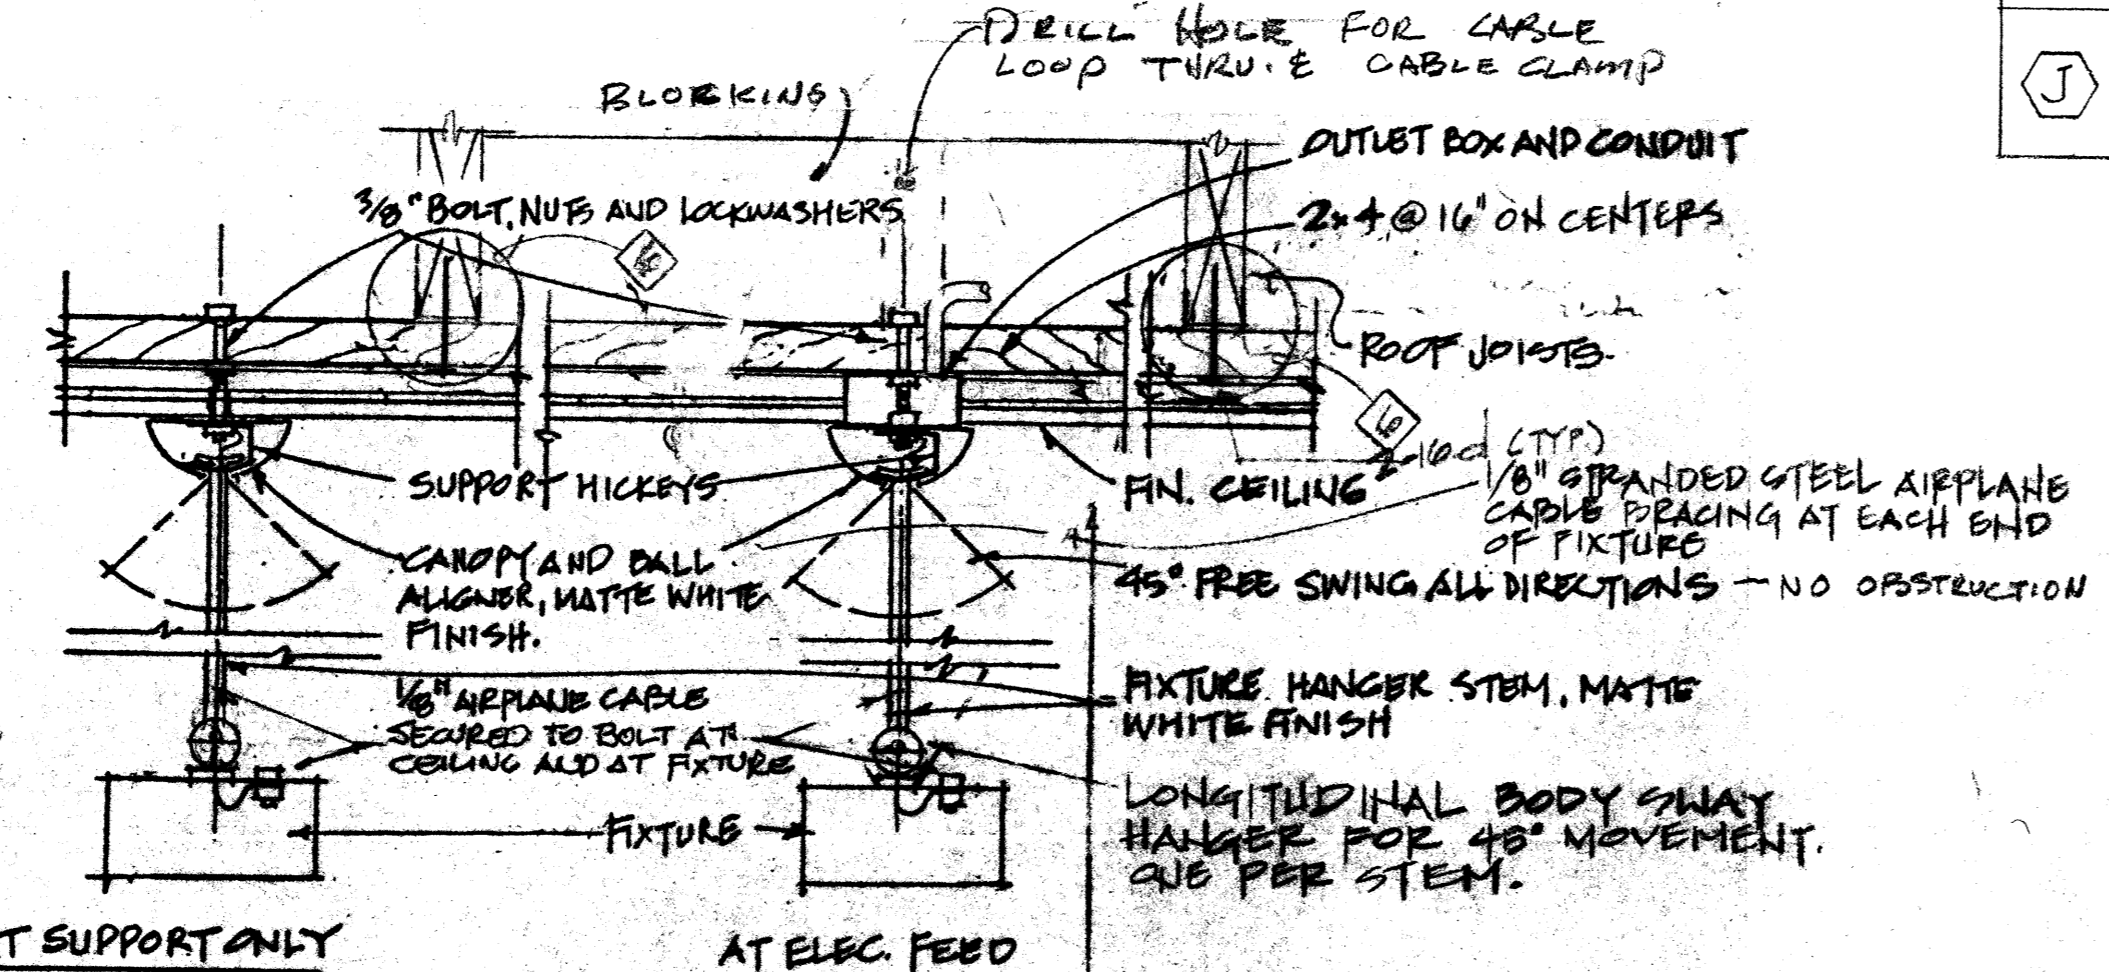 DRILL HOLE FOR CABLE
LOOP THRU. & CABLE CLAMP
J
BLOCKING
OUTLET BOX AND CONDUIT
3/8" BOLT, NUTS AND LOCKWASHERS
2x4 @ 16" ON CENTERS
6
ROOF JOISTS.
6
2-16d (TYP.)
SUPPORT HICKEYS
FIN. CEILING
1/8" STRANDED STEEL AIRPLANE
CABLE BRACING AT EACH END
OF FIXTURE
CANOPY AND BALL
ALIGNER, MATTE WHITE
FINISH.
45° FREE SWING ALL DIRECTIONS - NO OBSTRUCTION
1/8" AIRPLANE CABLE
SECURED TO BOLT AT
CEILING AND AT FIXTURE
FIXTURE HANGER STEM, MATTE
WHITE FINISH
LONGITUDINAL BODY SWAY
HANGER FOR 45° MOVEMENT.
ONE PER STEM.
FIXTURE
T SUPPORT ONLY
AT ELEC. FEED